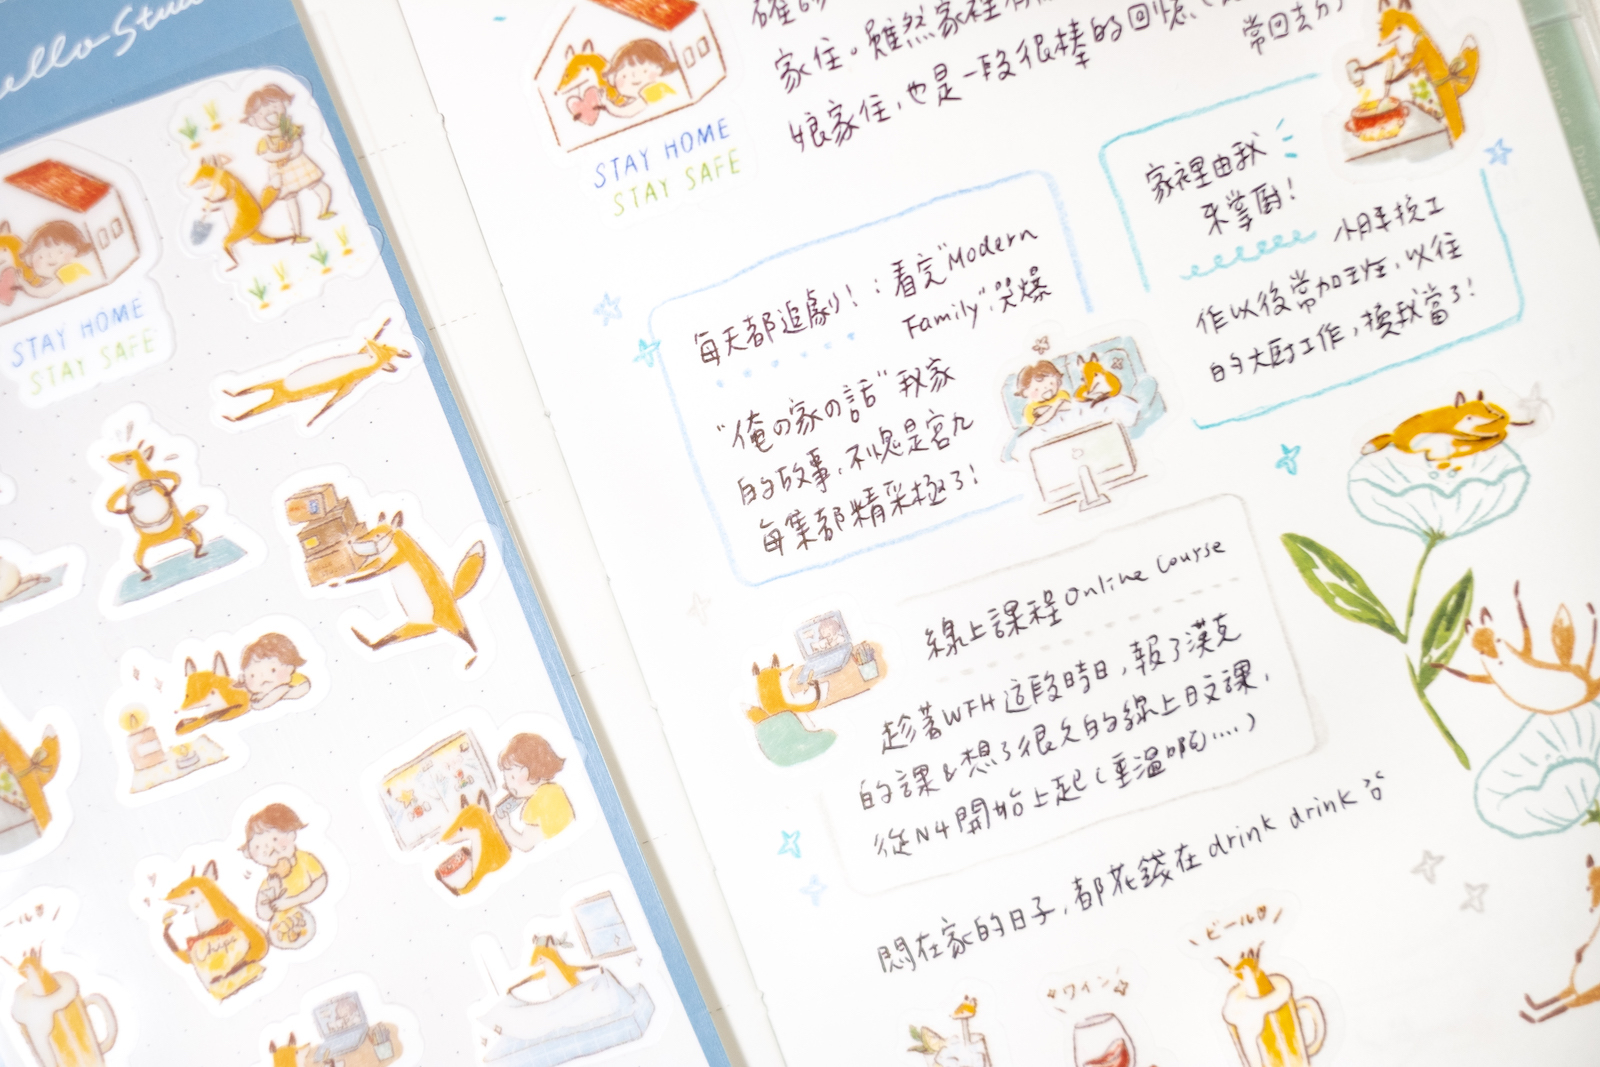 STAY HOME
STAY SAFE
STAY HOME
STAY SAFE
家住。雖然家裡
常回去
娘家住,也是一段很棒的回憶
家裡由我
來掌廚!
作以後常加班,以往
的大廚工作,換我當了!
每天都追劇!:看完"Modern
Family"笑爆
"俺の家の話"我家
的故事,不愧是宮九
每集都精采極了!
線上課程 Online Course
趁著WFH這段時日,報了漢克
的課&想了很久的線上日文課,
從N4開始上起(重溫啊....)
悶在家的日子,都花錢在 drink drink
ビール
ワイン
ビール
Chips